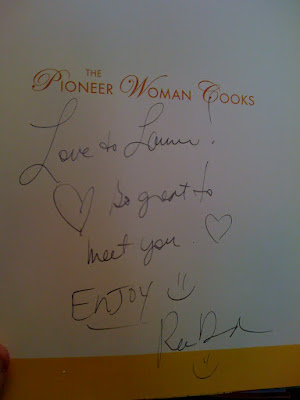 THE
PIONEER WOMAN COOKS
Love to Lauren!
So great to
meet you.
ENJOY
Ree D